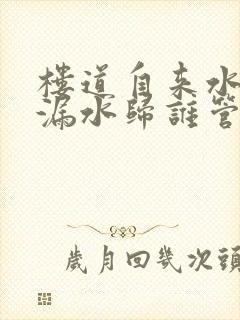 樓道自来水
漏水歸誰管
歲月回幾次頭